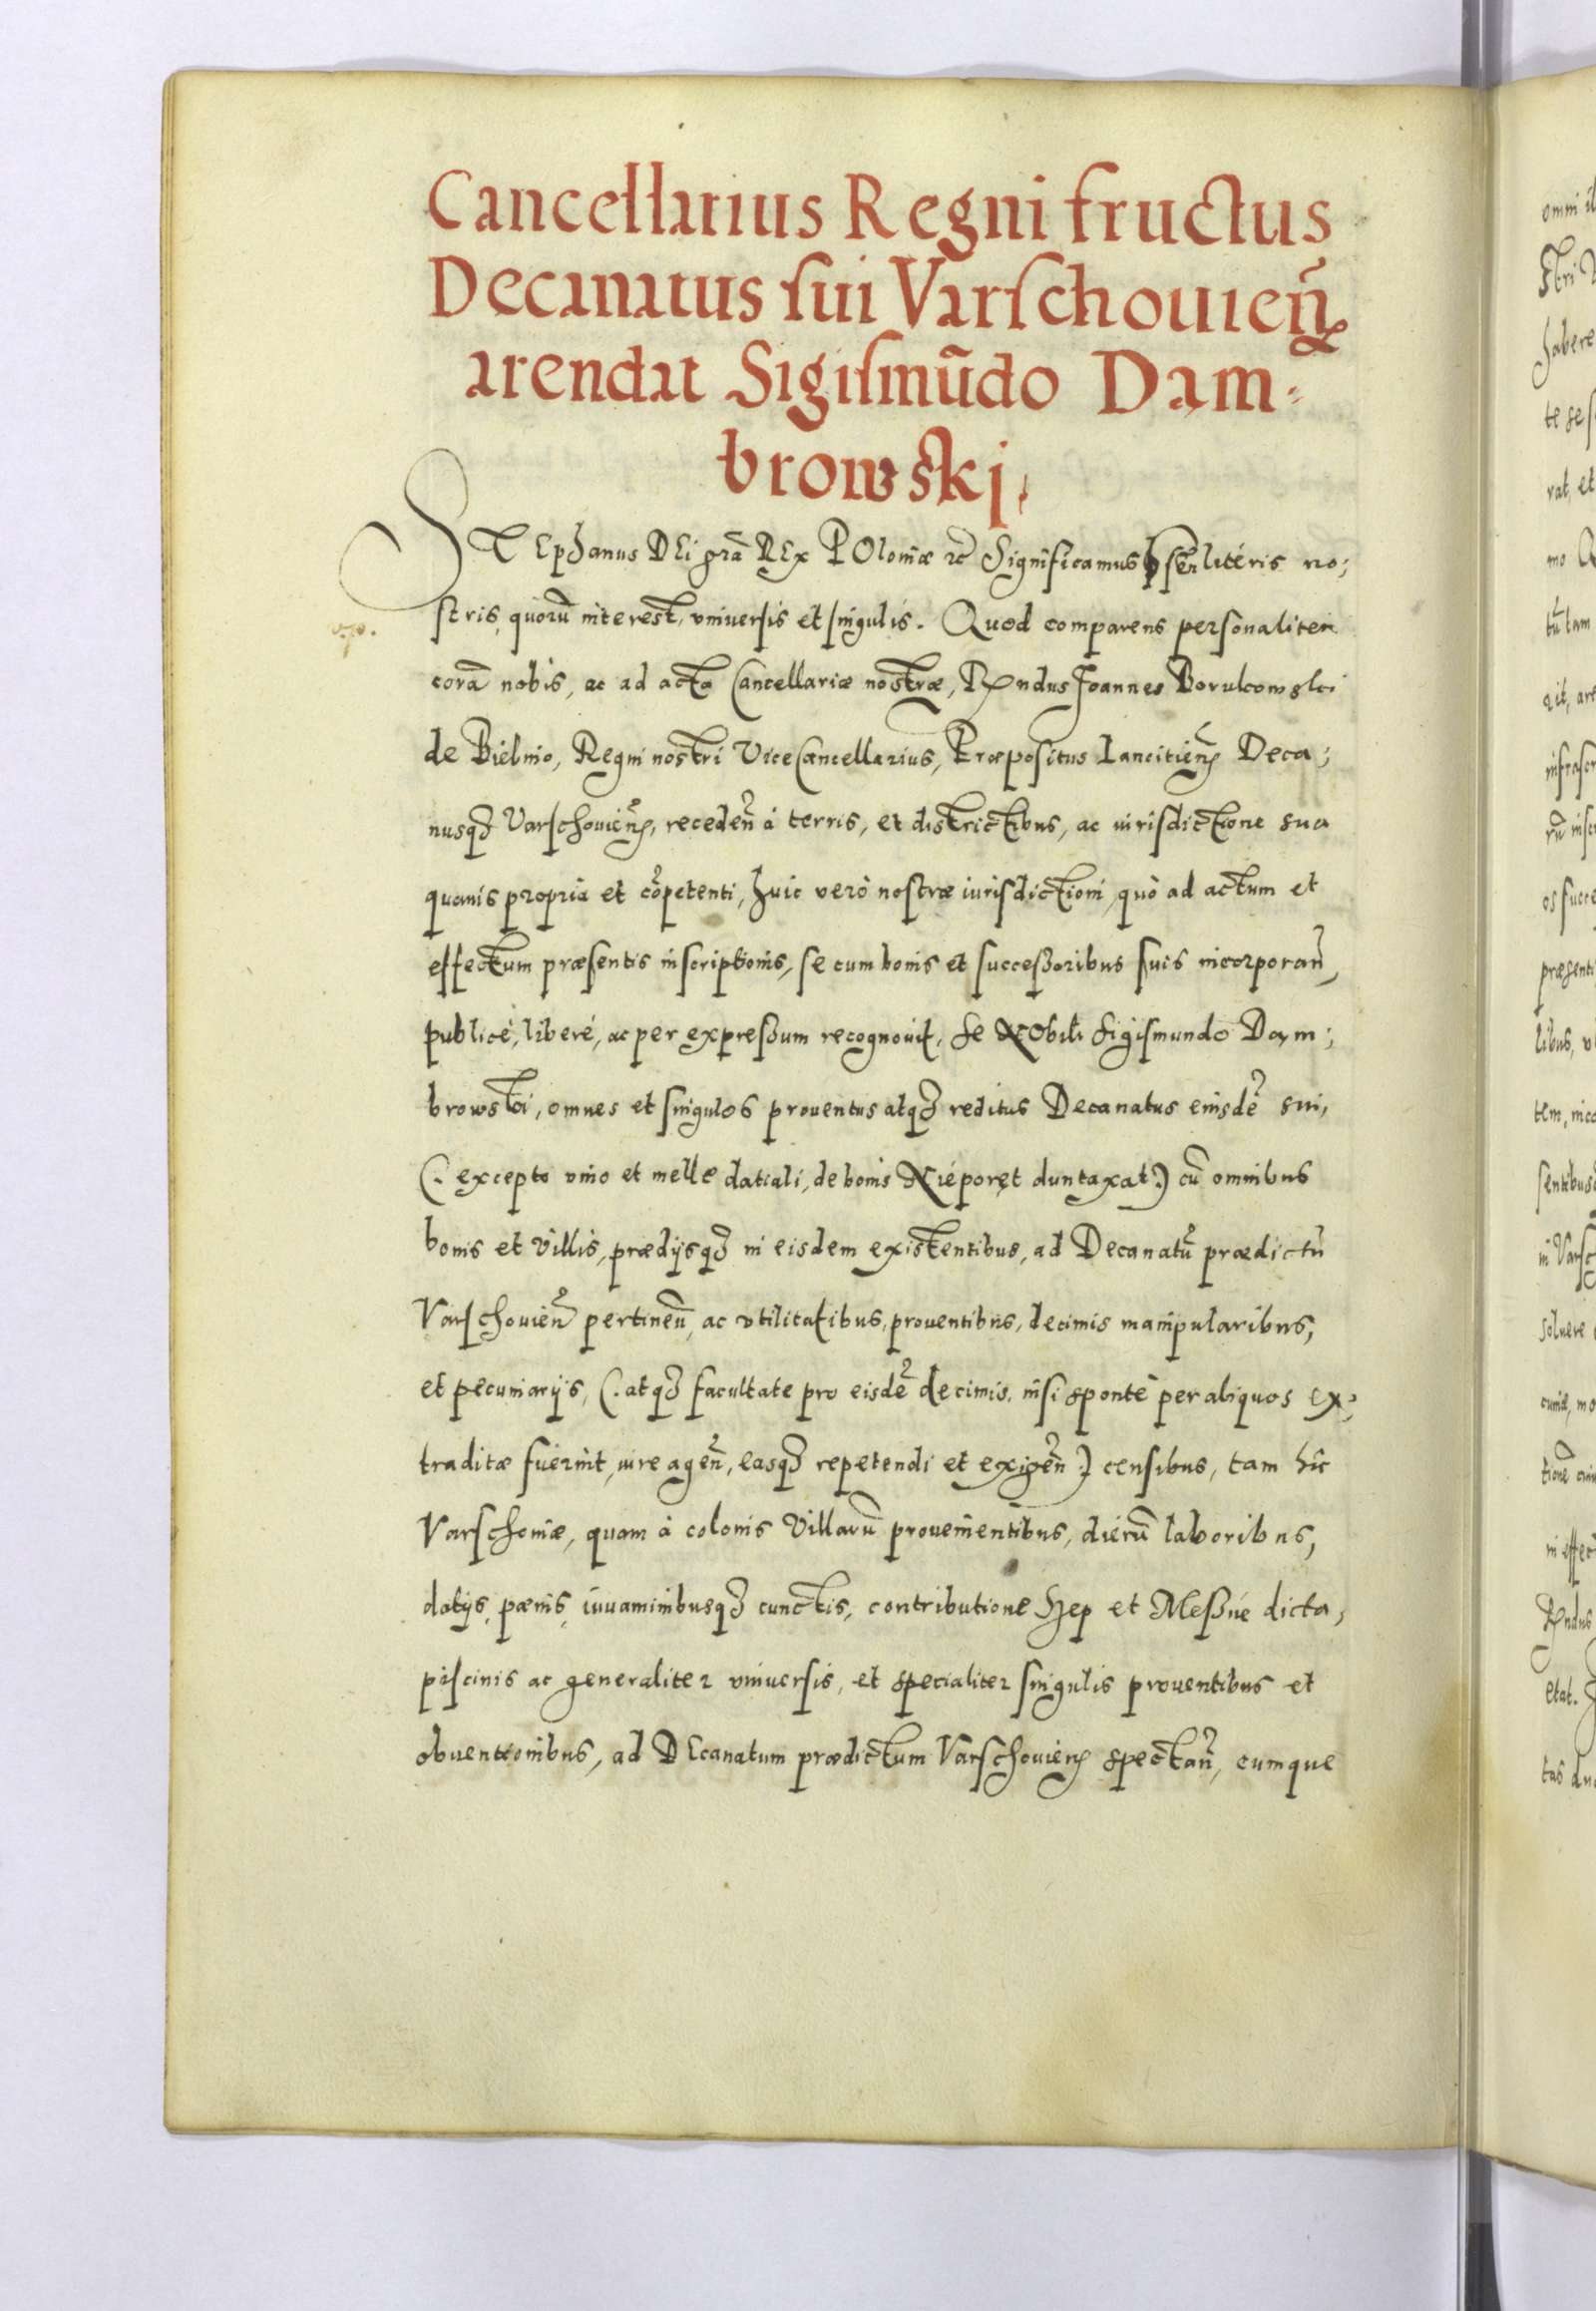 Cancellarius Regni fructus
Decanatus sui Varschouieñ
arendat Sigismũdo Dam=
browski,
STEphanus DEi grã REx POloniæ ꝛc̃ Significamus p̃señ literis no;
stris, quorũ interest, vniuersis et singulis. Quod comparens personaliter
corã nobis, ac ad acta Cancellariæ nostræ, Rṇdus Joannes Borukowski
de Bielino, Regni nostri ViceCancellarius, Præpositus Lancitieñ Deca;
nusqʒ Varschouieñ, recedeñ à terris, et districtibus, ac iurisdictione sua
quauis propria et cõpetenti, huic verò nostræ iurisdictioni, quò ad actum et
effectum præsentis inscriptionis, se cum bonis et successoribus suis incorporañ,
publicè, liberè, ac per expressum recognouit, Se NObili Sigismundo Dam;
browski, omnes et singulos prouentus atqʒ reditus Decanatus eiusdẽ sui,
(. excepto vino et melle datiali, de bonis Niéporęt duntaxat .) cũ omnibus
bonis et Villis, prædijsqʒ in eisdem existentibus, ad Decanatũ prædictũ
Varschouieñ pertineñ, ac vtilitatibus, prouentibus, decimis manipularibus,
et pecuniarijs, (. atqʒ facultate pro eisdẽ decimis, nisi sponte per aliquos ex;
traditæ fuerint, iure ageñ, easqʒ repetendi et exigeñ .) censibus, tam hîc
Varschouiæ, quam à colonis Villarũ prouenientibus, dierũ laboribus,
datijs, pænis, iuuaminibusqʒ cunctis, contributione Sep et Messne dicta,
piscinis ac generaliter vniuersis, et specialiter singulis prouentibus et
obuentionibus, ad DEcanatum prædictum Varschouieñ spectañ, eumque